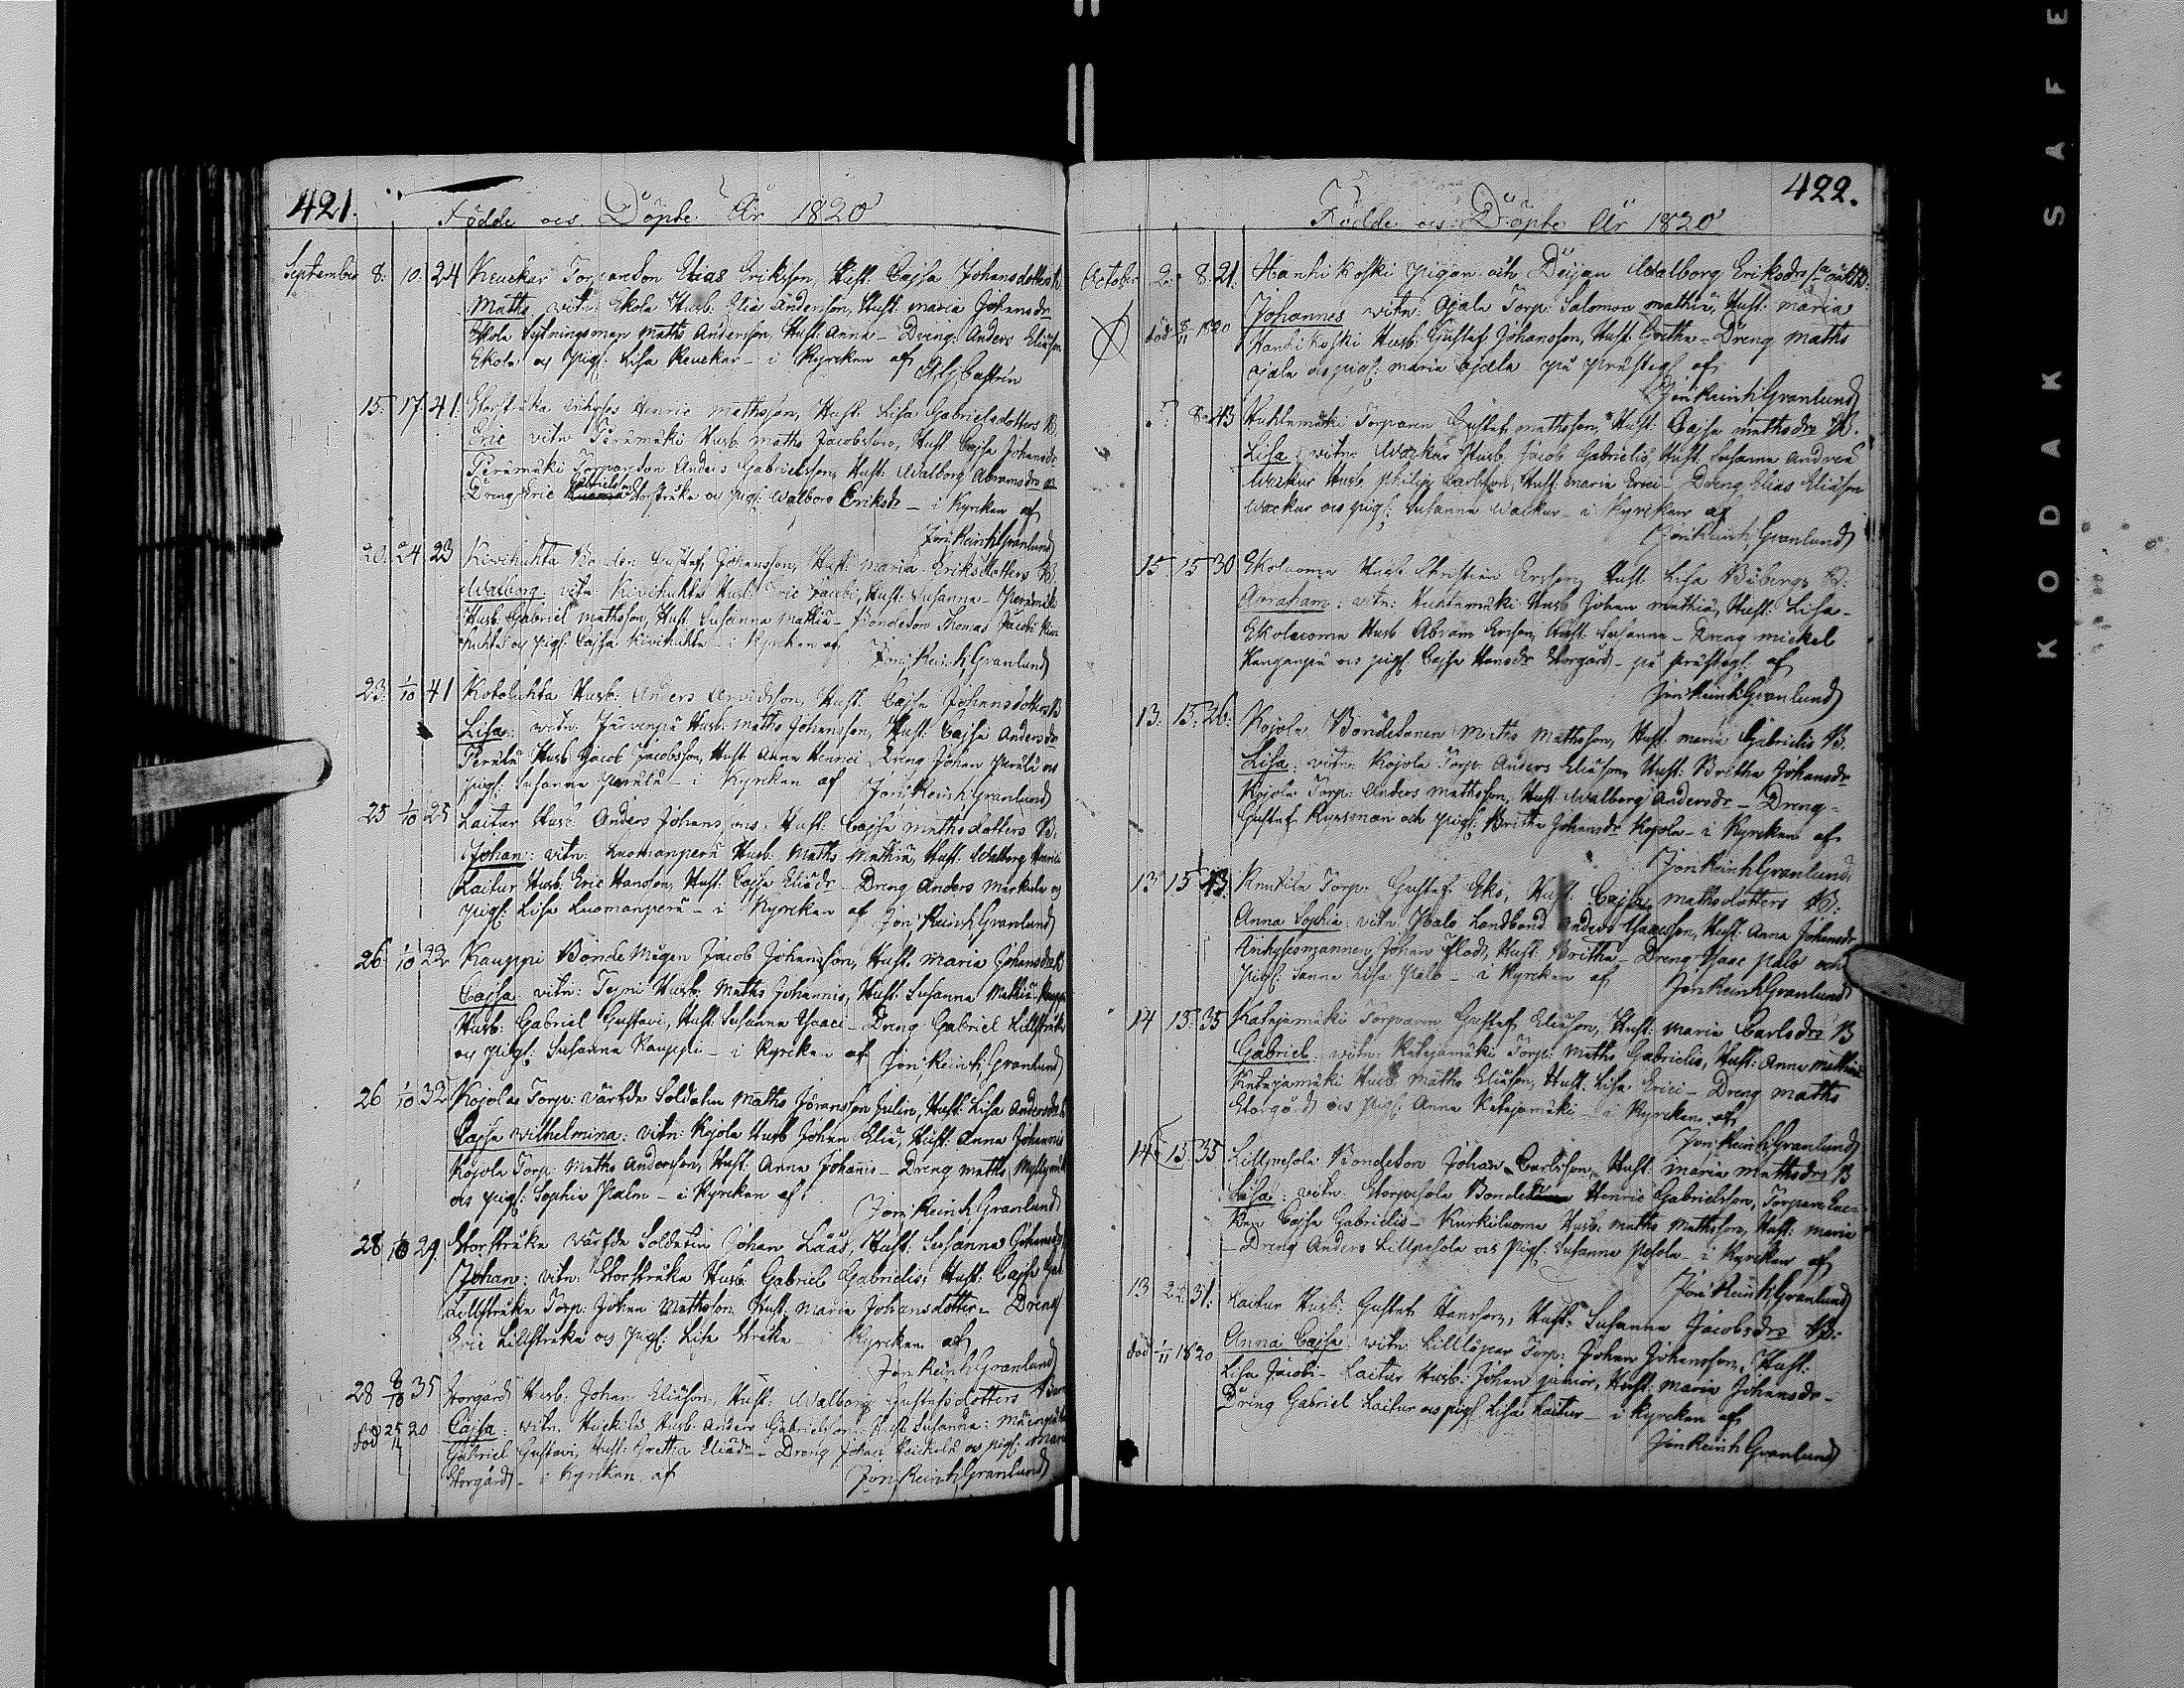 421.
Födde och Döpte År 1820
September 8: 10. 24 Keuckar Torparson Elias Eriksson, Hust: Cajsa Johansdotters
Maths vitn: Skola Husb: Elias Andersson, Hust: maria Johansdr
Skola Sytningsman Maths Andersson, Hust: Anna – Dreng Anders Eliæson
Skola och pig: Lisa Keuckar – i Kyrckan af
15. 17 41. Storstråka Henric Mathsson, Hust: Lisa Gabrielsdotters B.
Eric vitn Perämäki Husb. Maths Jacobsson, Hust. Cajsa Johansdr
Perämäki Torparson Anders Gabrielsson, Hust: Walborg Abramsdr
Dreng Eric Gabrielsson Storstråka och pig: Walborg Eriksdr – i Kyrckan af
Jon: Reinh: Granlund
20. 24 23 Kivihuhta Bonden Gustaf Johansson, Hust: Maria Eriksdotters B.
Walborg: vitn Kivihuhta Husb: Eric Jacobi, Hust: Susanna – Perämäki
Husb. Gabriel Mathsson, Hust: Susanna Mathiæ – Bondeson Thomas Jacobi Kivi
huhta och pig: Cajsa Kivihuhta – i Kyrckan af Jon: Reinh: Granlund
23: 1/10 41 Kotoluhta Husb: Anders Arvidsson, Hust. Cajsa Johansdotters B
Lisa: vitn: Järvenpä Husb. Maths Johansson, Hust: Cajsa Andersdr
Perälä Husb Jacob Jacobsson, Hust Anna Henrici – Dreng Johan Perälä och
pig: Susanna Perälä – i Kyrckan af Jon: Reinh: Granlund
25 1/10 25 Laitur Husb: Anders Johanssons, Hust: Cajsa Mathsdotters B.
Johan: vitn: Luomanperä Husb: Maths Mathiæ, Hust: Walborg Henrici
Laitur Husb. Eric Hansson, Hust: Cajsa Eliædr – Dreng Anders Markula och
pig: Lisa Luomanperä – i Kyrckan af Jon: Reinh: Granlund
26 1/10 22 Kauppi Bonde Mågen Jacob Johansson, Hust: Maria Johansdrs B
Cajsa: vitn: Teppi Husb. Maths Johannis, Hust: Susanna Mathiæ – Kauppi
Husb: Gabriel Gustavi, Hust: Susanna Isaaci – Dreng Gabriel Lillstråka
och pig: Susanna Kauppi – i Kyrckan af Jon: Reinh: Granlund
26 1/10 32 Kojolas Torp: värfde Soldaten Maths Jöransson Julin, Hust: Lisa Andersdrs
Cajsa Wilhelmina: vitn: Kojola Husb Johan Eliæ, Hust: Anna Johannis
Kojola Torp: Maths Andersson, Hust: Anna Johannis – Dreng Maths
och pig: Sophia Palm – i Kyrckan af
Jon: Reinh: Granlund
28 1/10 29. Storstråka Värfde Soldaten Johan Låås, Hust: Susanna Johansdrs
Johan: vitn: Storstråka Husb. Gabriel Gabrielis, Hust: Cajsa
Lillstråka Torp: Johan Mathsson, Hust: Maria Johansdotter – Dreng
Eric Lillstråka och pig: Lisa Stråka – Kyrckan af
Jon: Reinh: Granlund
28 8/10 35 Storgård Husb: Johan Eliæson, Hust: Walborg Gustafsdotters Barn
död 25/11 20 Cajsa: vitn: Huckila Husb. Anders Gabrielsson, Hust Susanna:
Gabriel Gustavi, Hust: Gretha Eliædr – Dreng Johan och pig: Maria
Storgård – i Kyrckan af Jon: Reinh: Granlund
422.
Födde och Döpte År 1820
October 2: 8. 21. Hanhikoski pigan och Deijan Walborg Eriksdrs
Johannes vitn: Ojala Torp: Salomon Mathiæ, Hust: Maria
död 8/11 1820 Hanhikoski Husb: Gustaf Johansson, Hust. Gretha – Dreng Maths
Ojala och pig: Maria Ojala på Prästeg: af
Jon: Reinh: Granlund
8. 43 Huhtamäki Torparen Gustaf Mathsson, Hust: Cajsa Mathsdrs B.
Lisa: vitn: Wackur Husb: Jacob Gabrielis, Hust. Susanna Andreæ
Wackur Husb. Philip Carlsson, Hust: Maria Erici – Dreng Elias Eliæson
Wackur och pig: Susanna Wackur – i Kyrckan af
Jon: Reinh: Granlund
15. 15 30 Skoluoma Husb Christian Ersson, Hust. Lisa Bibergs B:
Abraham: vitn: Huhtamäki Husb Johan Mathiæ, Hust: Lisa –
Skoluoma Husb Abram Ersson, Hust: Susanna – Dreng Mickel
Kanganpä och pig: Cajsa Hansdr Storgård – på Prästeg: af
Jon: Reinh: Granlund
13: 15: 26: Kojola Bondesonen Maths Mathsson, Hust: Maria Gabrielis B.
Lisa: vitn: Kojola Torp: Anders Eliæson, Hust: Britha Johansdr
Kojola Torp: Anders Mathsson, Hust Walborg Andersdr – Dreng
Gustaf Kursman och pig: Britha Johansdr Kojola – i Kyrckan af
Jon: Reinh: Granlund
13 15 43. Knutila Torp: Gustaf Eks, Hust: Cajsa Mathsdotters B:
Anna Sophia: vitn: Palo Landbond Anders Isaacsson, Hust: Anna Johansdr
Inhysesmannen Johan Flod, Hust: Britha – Dreng Isaac Palo och
pig: Sanna Lisa Palo – i Kyrckan af Jon: Reinh: Granlund
14 15. 35 Katajamäki Torparen Gustaf Eliæson, Hust: Maria Carlsdrs B
Gabriel: vitn: Katajamäki Torp: Maths Gabrielis, Hust: Anna Mathiæ
Katajamäki Husb. Maths Eliæson, Hust: Lisa Erici – Dreng Maths
Storgård och pig: Anna Katajamäki – i Kyrckan af
Jon: Reinh: Granlund
14 15 35 Lillpesola Bondeson Johan Carlsson, Hust: Maria Mathsdrs B
Lisa: vitn: Storpesola Bonde Henric Gabrielsson, Torpare En-
kan Cajsa Gabrielis – Kurkiluoma Husb. Maths Mathsson, Hust: Maria
– Dreng Anders Lillpesola och pig: Susanna Pesola – i Kyrckan af
Jon: Reinh: Granlund
13 22 31: Laitur Husb: Gustaf Hansson, Hust: Susanna Jacobsdrs B:
död 1/11 1820 Anna Cajsa: vitn: Torp: Johan Johansson, Hust:
Lisa Jacobi – Laitur Husb: Johan junior, Hust: Maria Johansdr –
Dreng Gabriel Laitur och pig Lisa Laitur – i Kyrckan af
Jon Reinh Granlund
KODAK SAFE